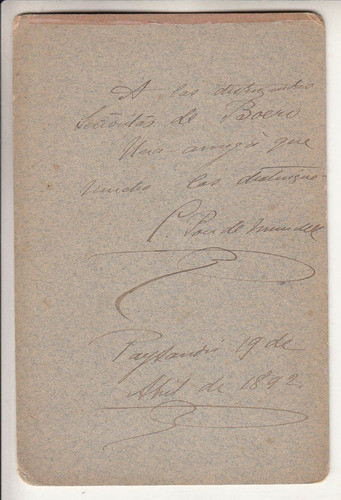 A las distinguidas
Señoritas de Boero
Una amiga que
mucho las distingue
C.
Paysandú 19 de
Abril de 1892